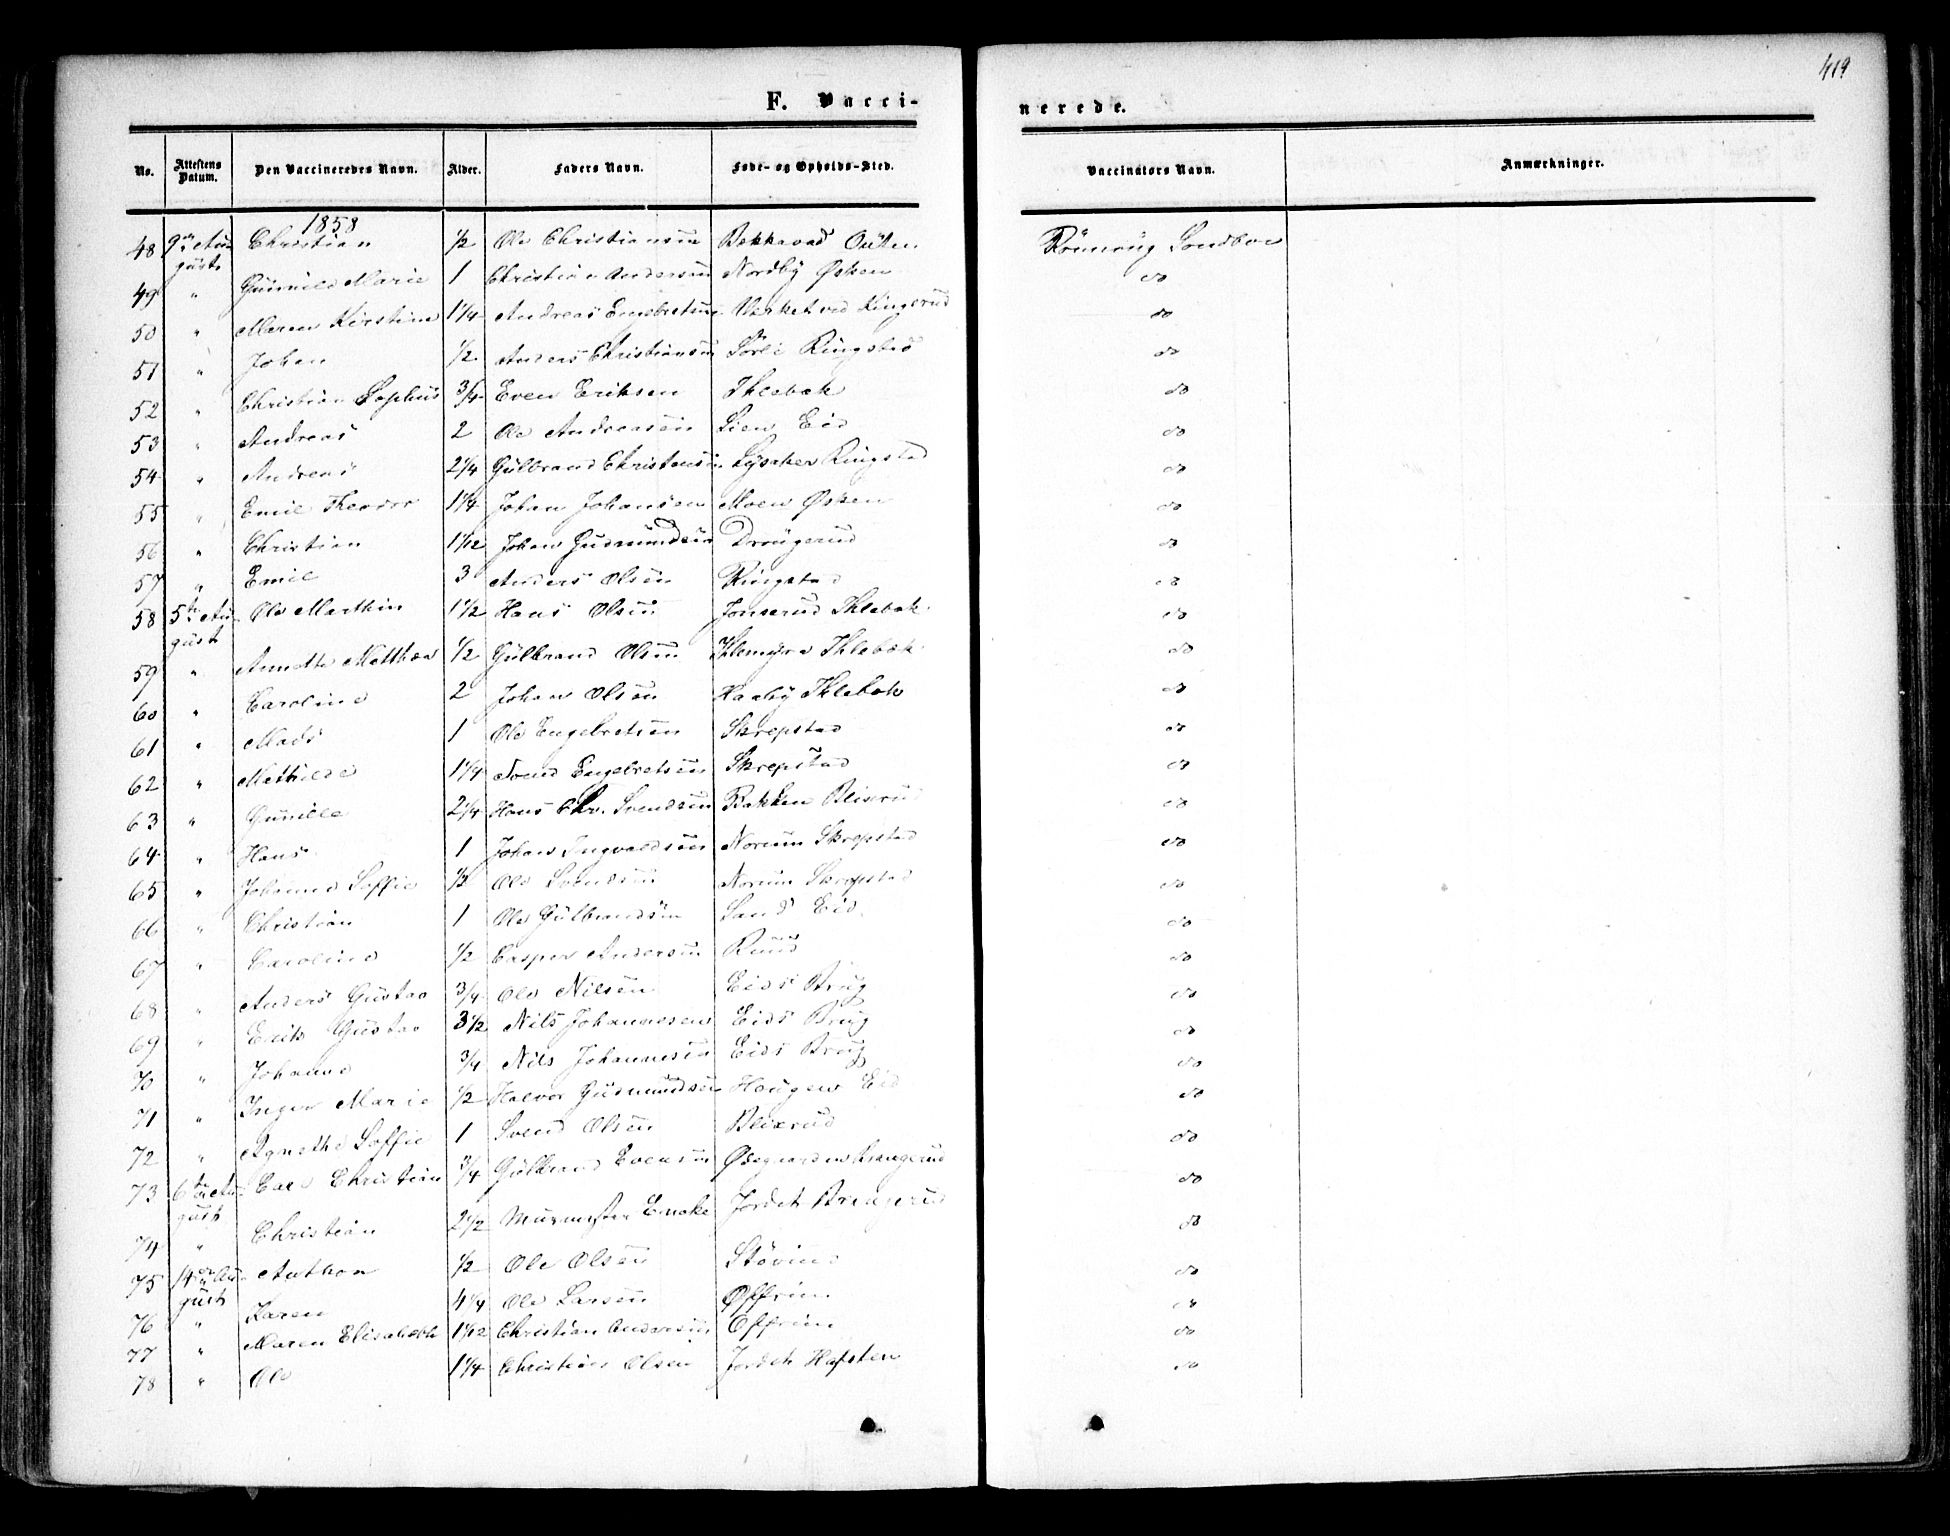 419
F. Vacci-
nerede.
No. Attestens Datum. Den Vaccineredes Navn. Alder. Faders Navn. Føde- og Opholds-Sted. Vaccinators Navn. Anmærkninger.
1858
48 9de August Christian 1/2 Ole Christiansen
49 " Gunnild Marie 1 Christian Andersen Nordby Østen do
50 " Maren Kirstine 1 1/4 Andreas Engebretsen Verket ved Kingsrud do
51 " Johan 1/2 Anders Christiansen Sørli Ringstad do
52 " Christian Sophus 3/4 Even Eriksen Thlebæk do
53 " Andreas 2 Ole Andreasen Lien Eid do
54 " Andreas 2 1/4 Gulbrand Christensen Lysaker Ringstad do
55 " Emil Theodor 1 1/4 Johan Johansen Moen Østen do
56 " Christian 1 1/12 Johan Gudmundsen Drougerud do
57 " Emil 3 Anders Olsen Ringstad do
58 5te August Ole Marthin 1 1/2 Hans Olsen Jonserud Thlebæk do
59 " Annette Matthea 1/2 Gulbrand Olsen Thlebæk do
60 " Caroline 2 Johan Olsen Haaby Thlebæk do
61 " Mads 1 Ole Engebretsen Skrepstad do
62 " Mathilde 1 1/4 Svend Engebretsen Skrepstad do
63 " Gunille 2 1/4 Hans Chr. Svendsen Bakken Blixrud do
64 " Hans 1 Johan Ingvaldsen Norum Skrepstad do
65 " Johanne Soffie 1/2 Ole Svendsen Norum Skrepstad do
66 " Christian 1 Ole Gulbrandsen Sand Eid do
67 " Caroline 1/2 Casper Andersen Ruud do
68 " Anders Gustav 3/4 Ole Nilsen Eids Brug do
69 " Erik Gustav 3 1/2 Nils Johannesen Eids Brug do
70 " Johanne 3/4 Nils Johannesen Eids Brug do
71 " Inger Marie 1/2 Halvor Gudmundsen Haugen Eid do
72 " Agnethe Soffie 1 Svend Olsen Blixrud do
73 6te August Carl Christian 3/4 Gulbrand Evensen do
74 " Christian 2 1/2 Murmester Jordet do
75 14de August Anthon 1/2 Ole Olsen Støvind do
76 " Karen 4 1/4 Ole Larsen Øffrim do
77 " Maren Elisabeth 1 1/12 Christian Andersen Offrim do
78 " Ole 1 1/4 Christian Olsen Jordet Hafsten do